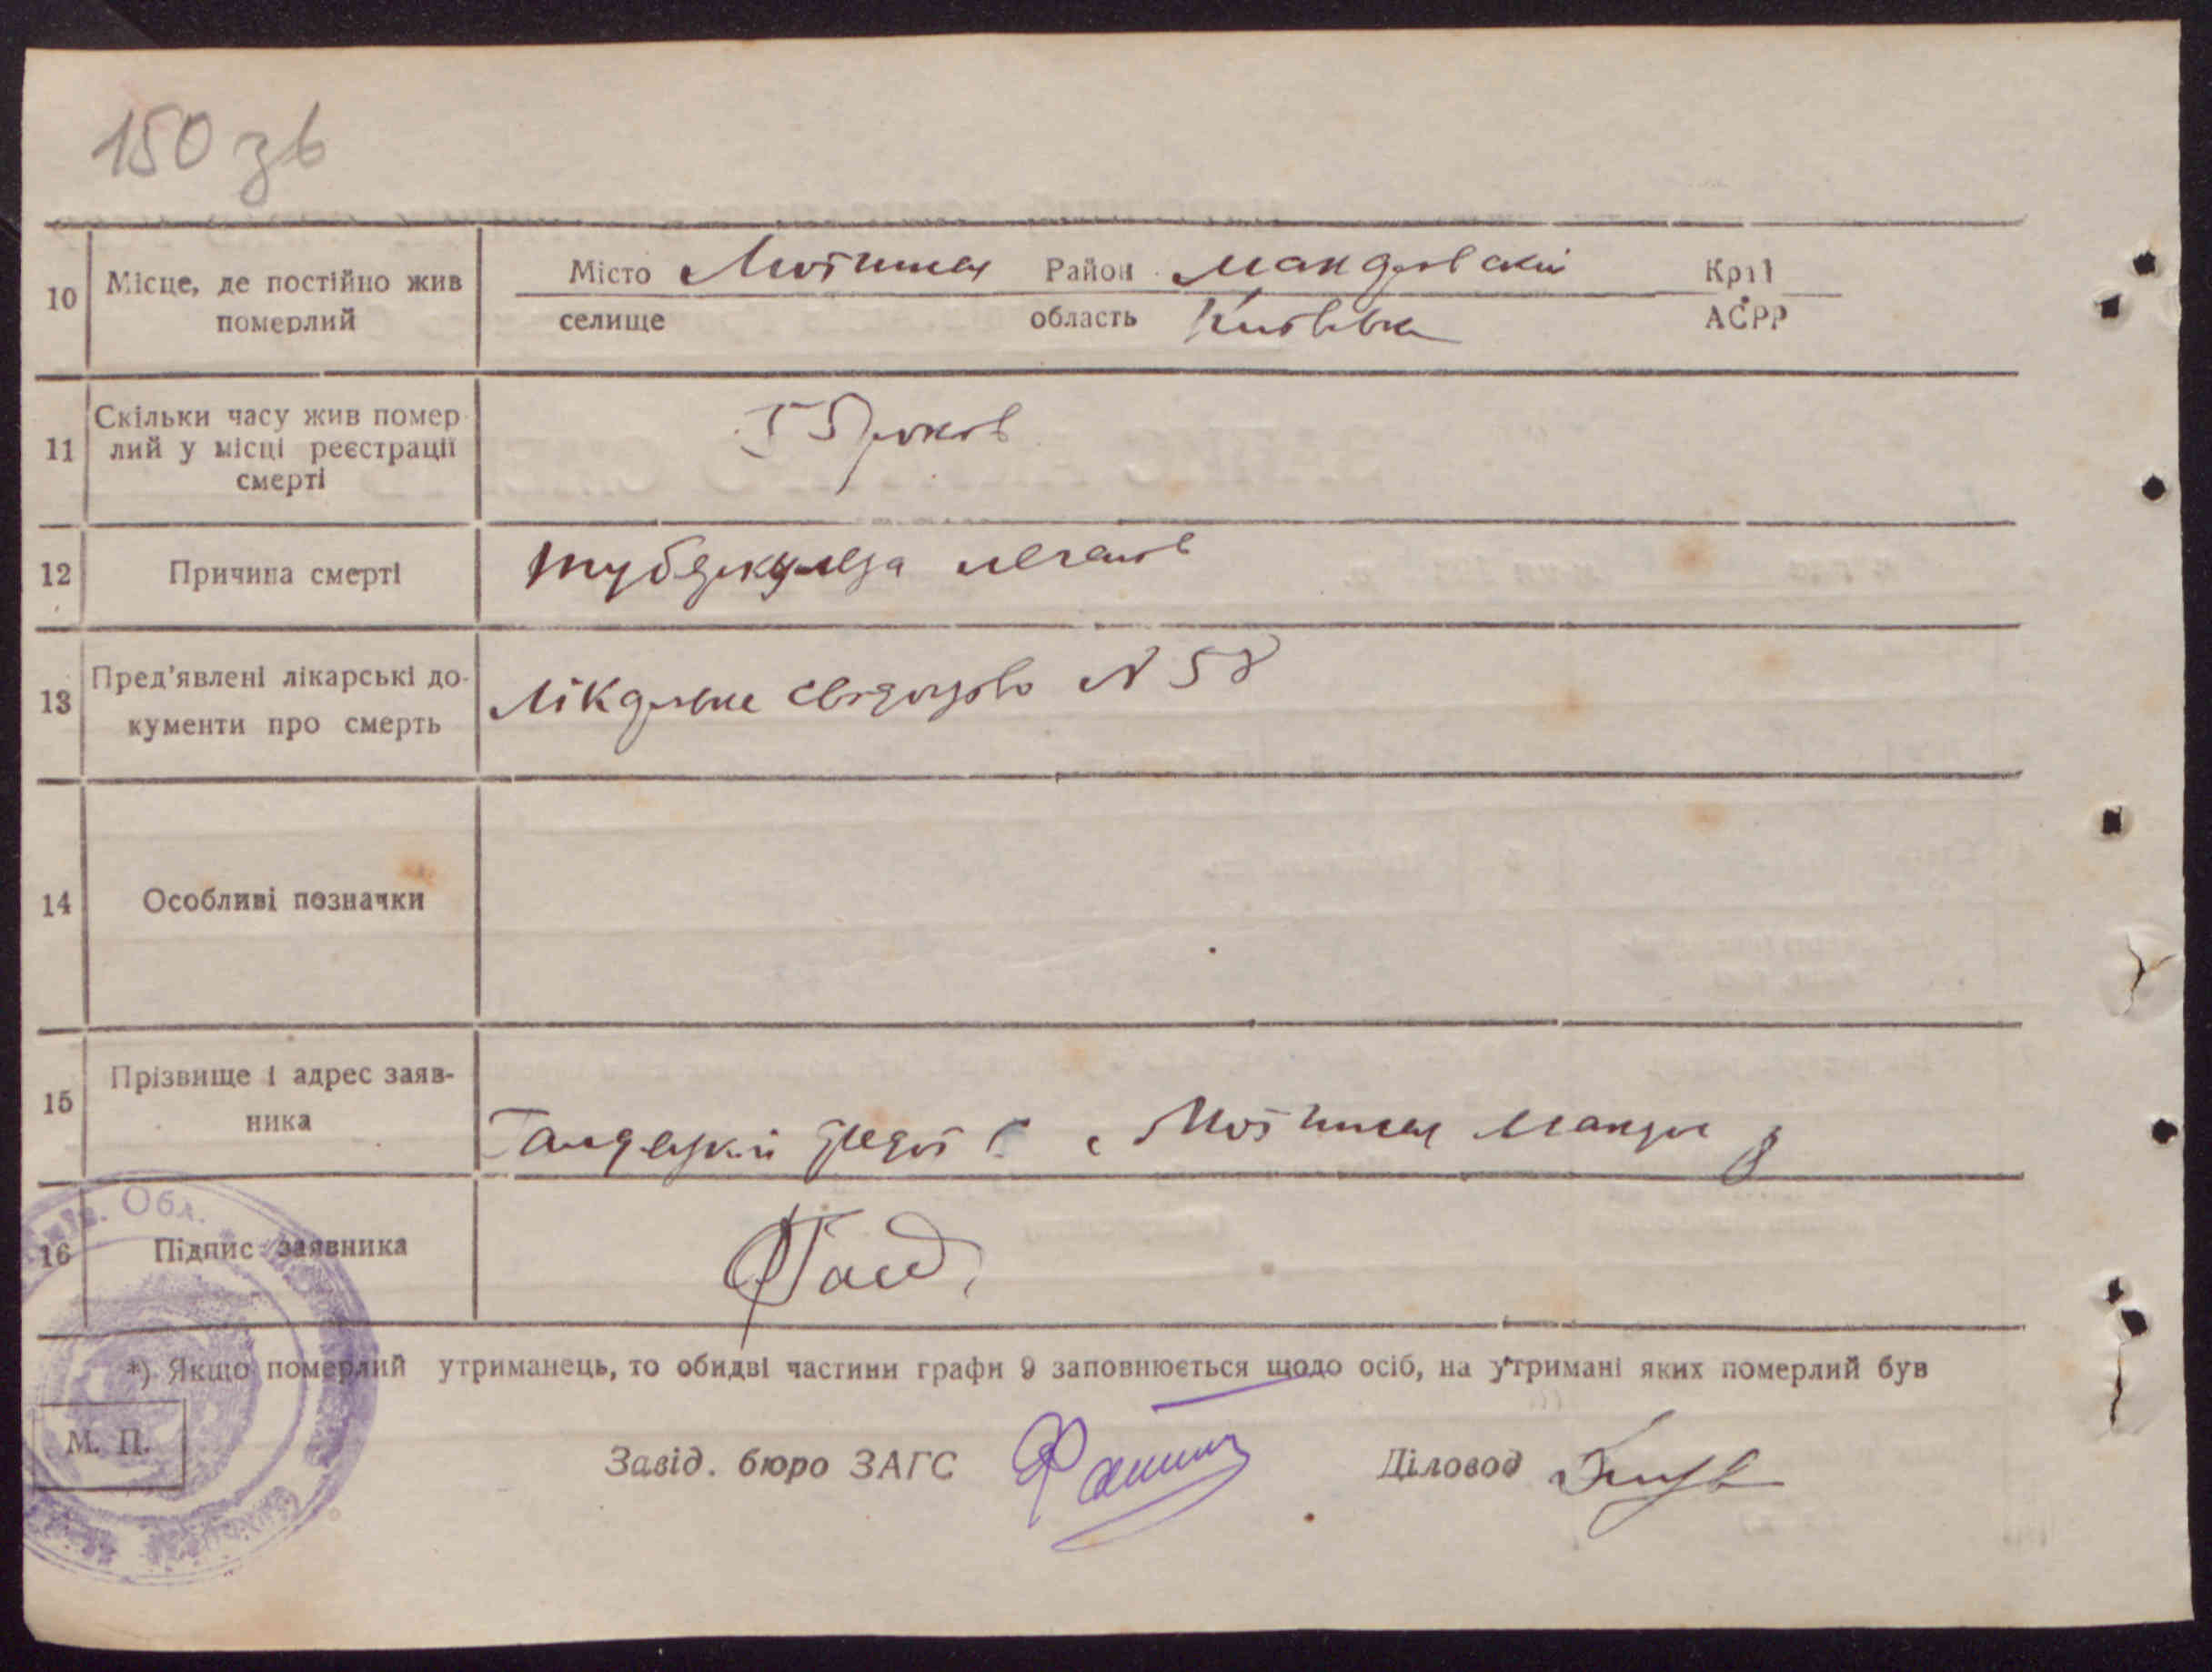 150 зв
10 Місце, де постійно жив померлий
Місто Район мандрівський Край
селище область Київська АСРР
11 Скільки часу жив померлий у місці реєстрації смерті
55 років
12 Причина смерті
туберкульоза легенів
13 Пред'явлені лікарські документи про смерть
Лікарське свідоцтво N 58
14 Особливі позначки
15 Прізвище і адрес заявника
16 Підпис заявника
Обл.
*) Якщо померлий утриманець, то обидві частини графи 9 заповнюється щодо осіб, на утримані яких померлий був
М. П.
Завід. бюро ЗАГС Діловод